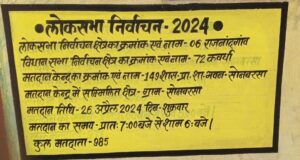 लोकसभा निर्वाचन-2024
लोकसभा निर्वाचन क्षेत्र का क्रमांक एवं नाम - 06 राजनांदगांव
विधान सभा निर्वाचन क्षेत्र का क्रमांक एवं नाम- 72 कवर्धा
मतदान केन्द्र का क्रमांक एवं नाम-149 शास. प्रा. शा. भवन- सोनबरसा
मतदान केन्द्र में सम्मिलित क्षेत्र - ग्राम - सोनबरसा
मतदान तिथि- 26 अप्रैल 2024 दिन-शुक्रवार
मतदान का समय- प्रातः 7:00 बजे से शाम 6: बजे।
कुल मतदाता-985